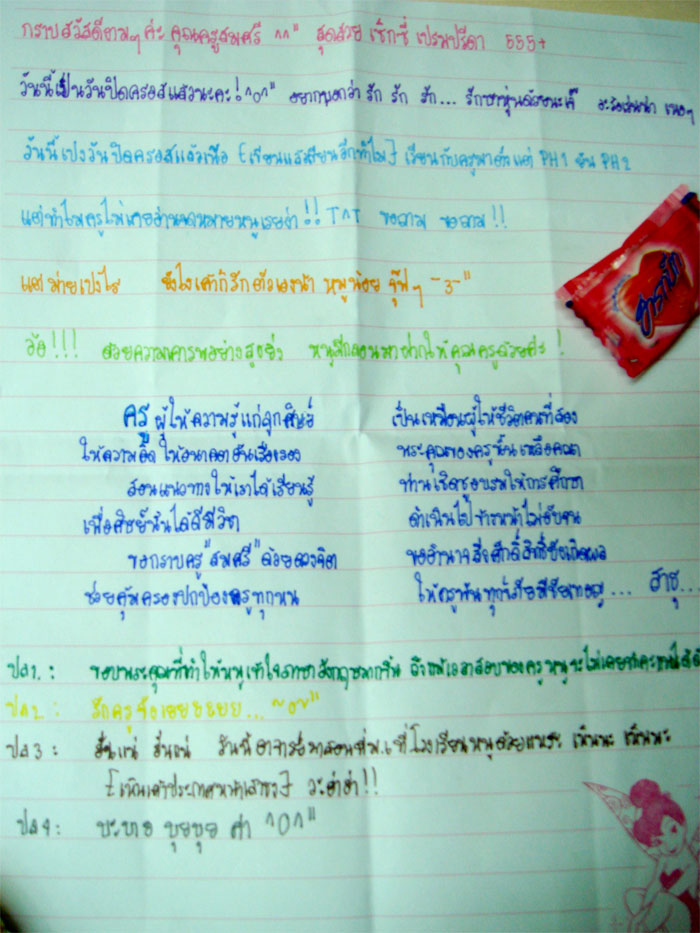 กราบสวัสดีงามๆค่ะ คุณครูสมศรี ^^" สุดสวย เซ็กซี่ เปรมปรีดา 555+
วันนี้เป็นวันปิดครอสแล้วนะคะ!^o^" อยากบอกว่า รัก รัก รัก...
วันนี้เปงวันปิดครอสแล้วเนื่อ {เรียนแล้วเขียนอีกทำไม} เรียนกับครูมาตั้งแต่ PH1 ยัน PH2
แต่ทำไมครูไม่เคยอ่านจดหมายหนูเรยอ่า!! T^T ขอถาม ขอถาม!!
แต่ ม่ายเปงไร ยังไงเค้าก็รักตัวเองน้า หมูน้อย จุ๊ฟๆ ~3~"
อ้อ!!! ด้วยความเคารพอย่างสูงยิ่ง หนูมีกลอนมาฝากให้คุณครูด้วยค่ะ!
ฮาร์ทบีท
ครู ผู้ให้ความรู้แก่ลูกศิษย์ เป็นเหมือนผู้ให้ชีวิตคนที่สอง
ให้ความคิด ให้อนาคตอันเรืองรอง พระคุณของครูนั้นเหลือคณา
สอนแนวทางให้เราได้เรียนรู้ ท่านเชิดชูอบรมให้การศึกษา
เพื่อศิษย์นั้นได้ดีมีวิชา ดำเนินไปข้างหน้าไม่อับจน
ขอกราบครู "สมศรี" ด้วยดวงจิต ขออำนาจสิ่งศักดิ์สิทธิ์จงเกิดผล
ช่วยคุ้มครองปกป้องครูทุกหน ให้ครูพ้นทุกข์ภัยมีชัยเทอญ... สาธุ...
ปล1.: ขอบพระคุณที่ทำให้หนูเข้าใจภาษาอังกฤษมากขึ้น
ปล2.: รักครูจังเลยยยยย... ~o~"
ปล3: วันนี้อาจารย์มาสอนพี่ม.6ที่โรงเรียนหนูด้วยแหระ
วะฮ่าฮ่า!!
ปล4: บะบาย บุยบุย ค่า ^O^"